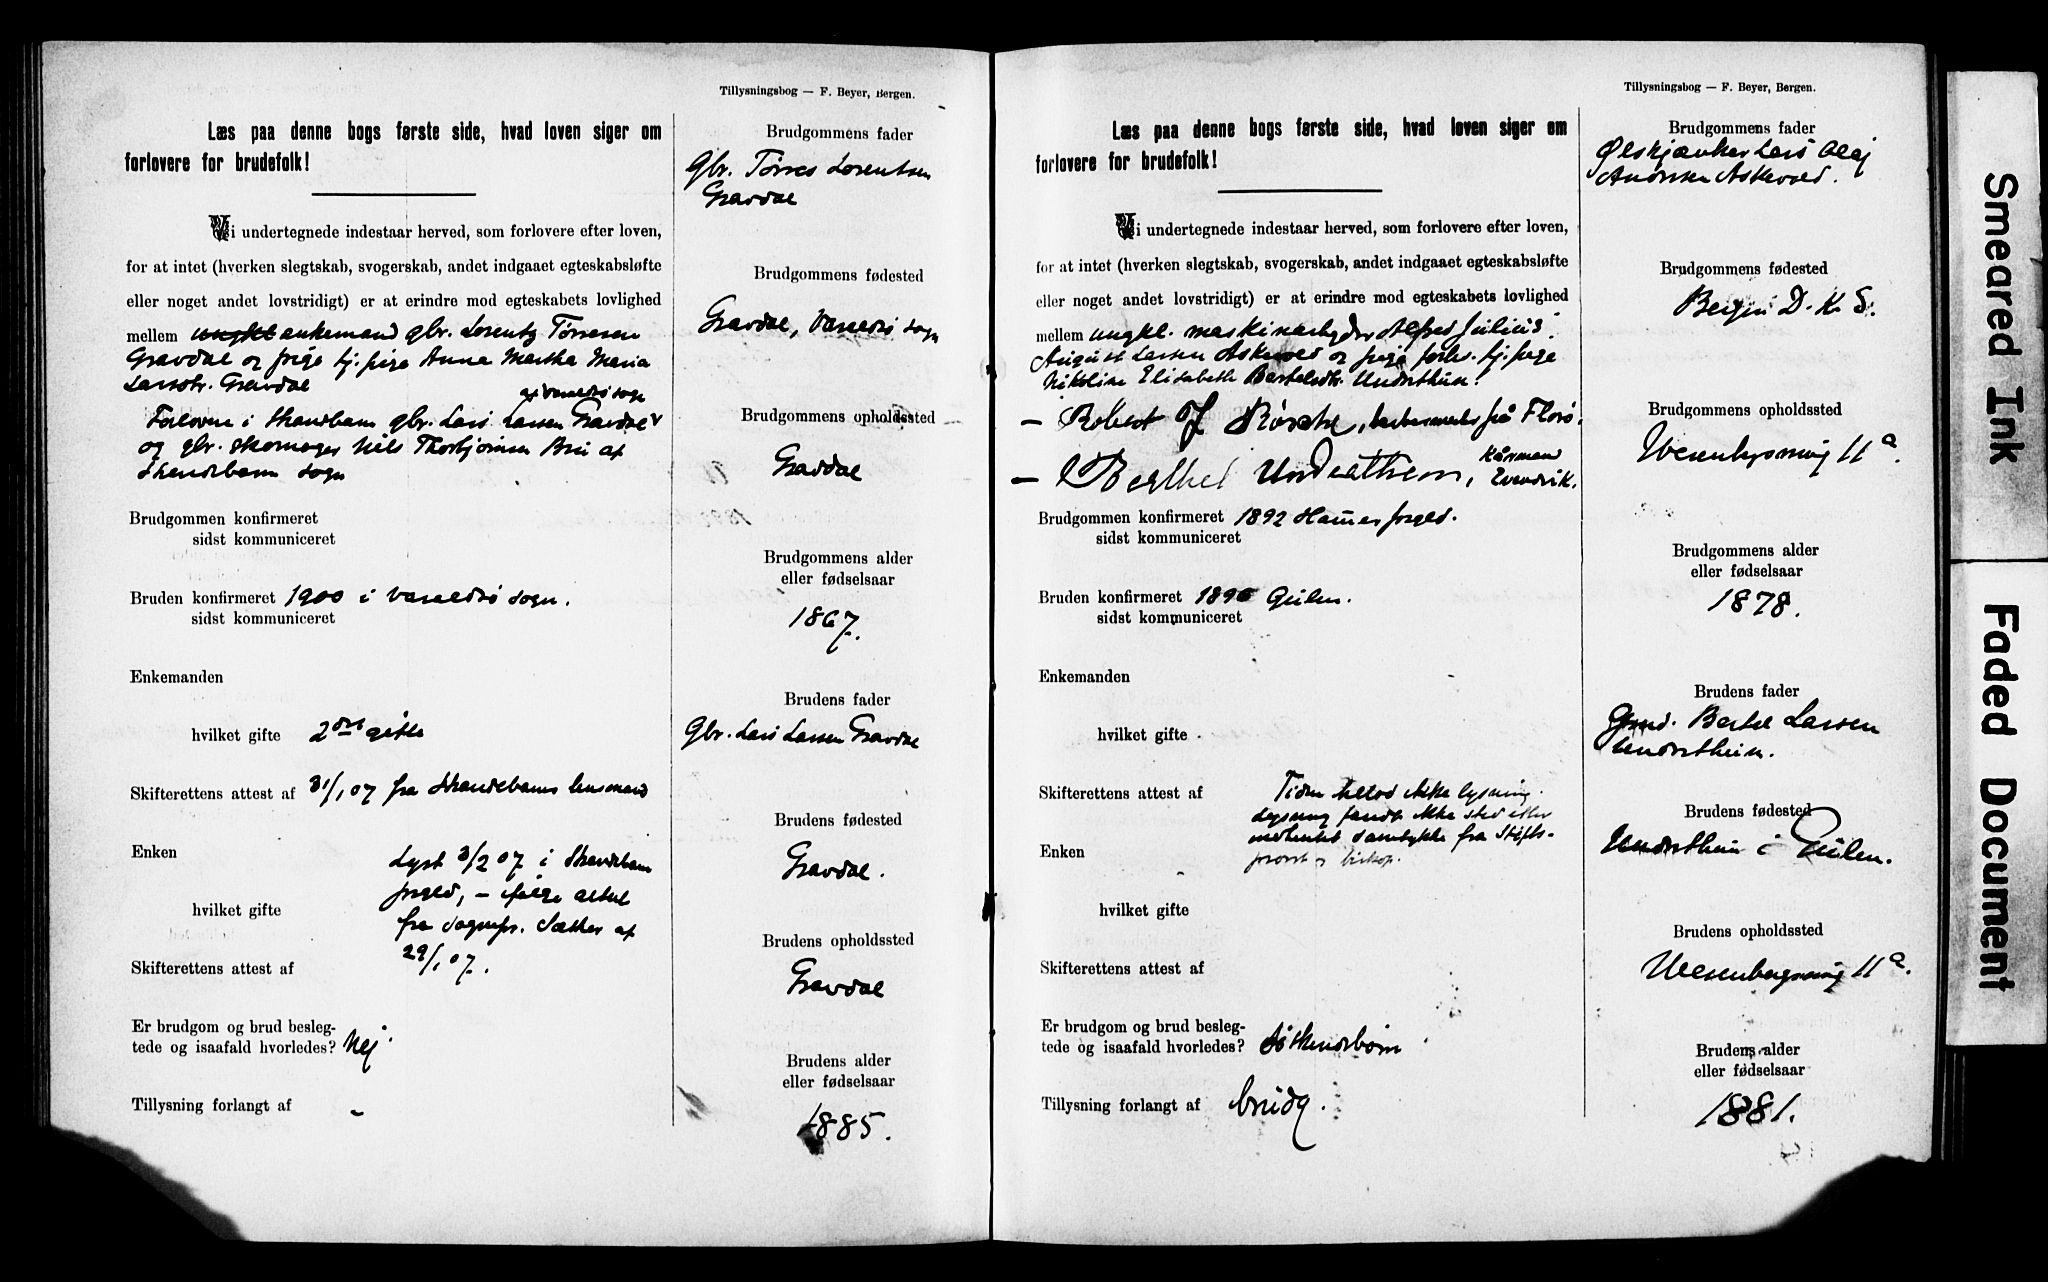 Tillysningsbog — F. Beyer, Bergen.
Læs paa denne bogs første side, hvad loven siger om
forlovere for brudefolk!
Vi undertegnede indestaar herved, som forlovere efter loven,
for at intet (hverken slegtskab, svogerskab, andet indgaaet egteskabsløfte
eller noget andet lovstridigt) er at erindre mod egteskabets lovlighed
mellem ungkl enkemand gbr. Lorentz Tørresen
Gravdal og pige tj. pige Anna Martha Maria
Larsdtr. Gravdal
af Varaldsø sogn
Forlovere i Strandebarm gbr. Lars Larsen Gravdal
og gbr. skomager Nils Thorbjørnsen Bru af
Strandebarm sogn
Brudgommen konfirmeret
sidst kommuniceret
Bruden konfirmeret 1900 i Varaldsø sogn.
sidst kommuniceret
Enkemanden
hvilket gifte 2det gifte
Skifterettens attest af 31/1 07 fra Strandebarms lensmand
Enken
Lyst 3/2 07 i Strandebarm
prgld, — ifølge attest
hvilket gifte
fra sognepr. Sæther af
29/1 07.
Skifterettens attest af
Er brudgom og brud besleg-
tede og isaafald hvorledes? Nej.
Tillysning forlangt af –
Brudgommens fader
Gbr. Tørres Lorentsen
Gravdal
Brudgommens fødested
Gravdal, Varaldsø sogn
Brudgommens opholdssted
Gravdal
Brudgommens alder
eller fødselsaar
1867.
Brudens fader
Gbr. Lars Larsen Gravdal
Brudens fødested
Gravdal.
Brudens opholdssted
Gravdal
Brudens alder
eller fødselsaar
1885.
Tillysningsbog — F. Beyer, Bergen.
Læs paa denne bogs første side, hvad loven siger om
forlovere for brudefolk!
Vi undertegnede indestaar herved, som forlovere efter loven,
for at intet (hverken slegtskab, svogerskab, andet indgaaet egteskabsløfte
eller noget andet lovstridigt) er at erindre mod egteskabets lovlighed
mellem ungkl. maskinarbeyder Alfred Julius
August Larsen Askevold og pige forh. tj. pige
Nikoline Elisabeth Bertelsdtr. Underthun.
— Robert J fra Florø.
— Berthel Underthun, Kårmand
Evindvik.
Brudgommen konfirmeret 1892 Hamre prgld.
sidst kommuniceret
Bruden konfirmeret 1896 Gulen.
sidst kommuniceret
Enkemanden
hvilket gifte
Skifterettens attest af
Tiden tillod ikke lysning.
Lysning fandt ikke sted efter
indhentet samtykke fra Stifts-
provst og biskop.
Enken
hvilket gifte
Skifterettens attest af
Er brudgom og brud besleg-
tede og isaafald hvorledes? Søskendebørn
Tillysning forlangt af brudg.
Brudgommens fader
Ølskjænker Lars Olaj
Andersen Askevold.
Brudgommens fødested
Bergen D. K. S.
Brudgommens opholdssted
Wesenbergsmug 11a.
Brudgommens alder
eller fødselsaar
1878.
Brudens fader
Gmd. Bertel Larsen
Underthun.
Brudens fødested
Underthun i Gulen.
Brudens opholdssted
Wesenbergsmug 11a.
Brudens alder
eller fødselsaar
1881.
Smeared Ink
Faded Document